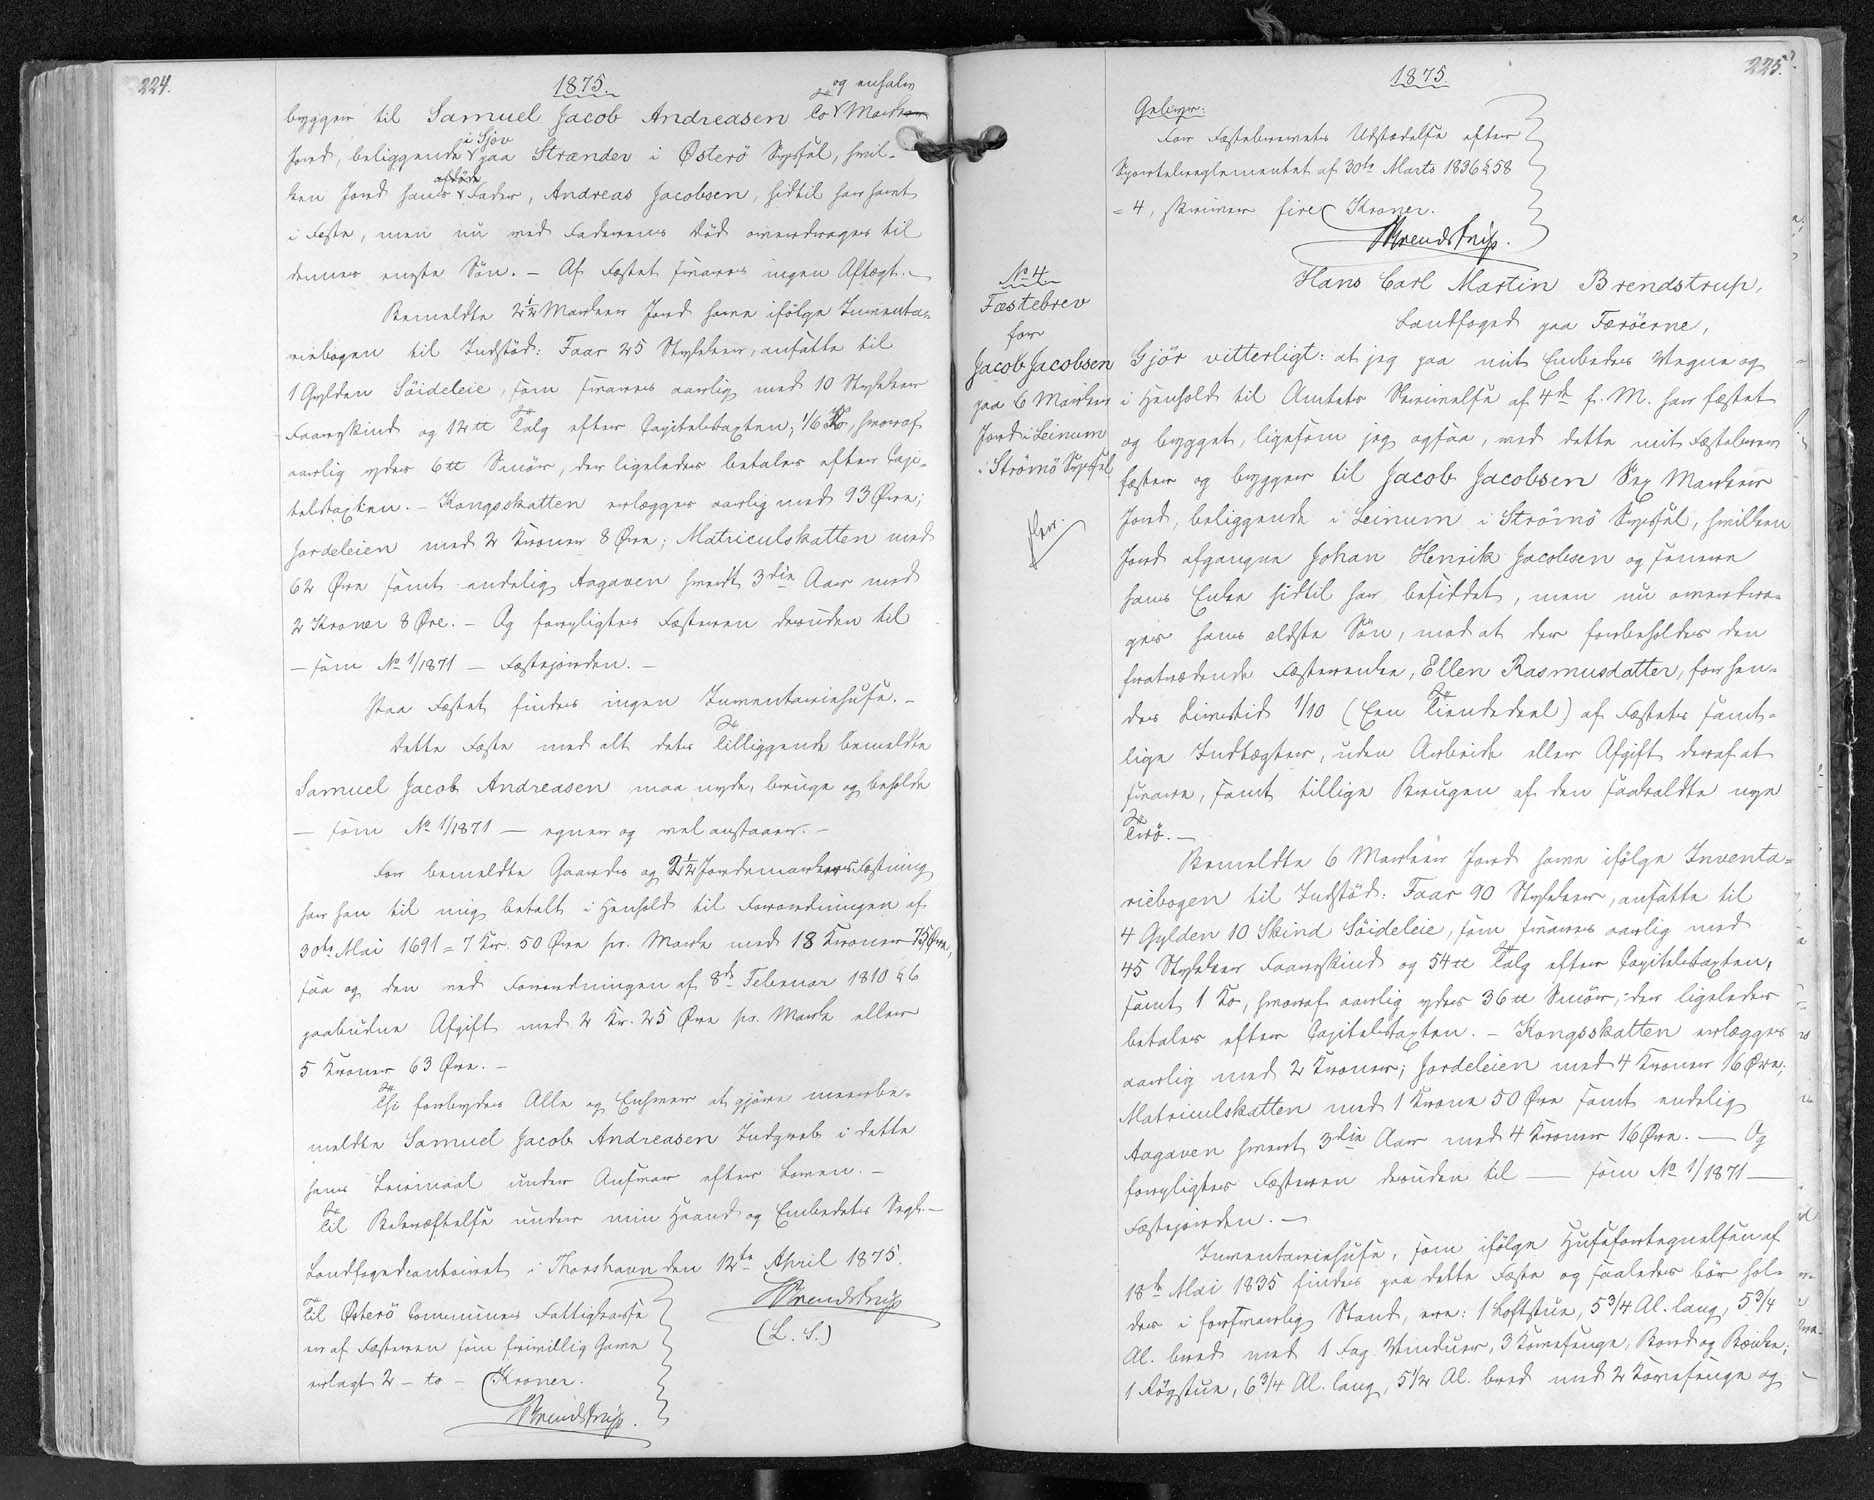 224.
1875.
og enhalv
bygger til Samuel Jacob Andreasen to Marker
i Sjov
Jord, beliggende paa Strænder i Østerö Syssel, hvil-
afdöde
ken Jord hans Fader, Andreas Jacobsen, hidtil har havt
i Fæste, men nu ved Faderens Död overdrages til
dennes eneste Sön. - Af Fæstet svares ingen Aftægt. -
Bemeldte 2 1/2 Marker Jord have ifölge Inventa-
riebogen til Indstöd: Faar 25 Stykker, ansatte til
1 Gylden Söideleie, som svares aarlig med 10 Stykker
Faareskind og 12 ℔ Talg efter Capitelstaxten; 1/6 Ko, hvoraf
aarlig ydes 6 ℔ Smör, der ligeledes betales efter Capi-
telstaxten. - Kongsskatten erlægges aarlig med 93 Øre;
Jordeleien med 2 Kroner 8 Øre; Matriculskatten med
62 Øre samt endelig Aagaven hvert 3die Aar med
2 Kroner 8 Øre. - Og forpligtes Fæsteren desuden til
- som No 1/1871 - Fæstejorden. -
Paa Fæstet findes ingen Inventariehuse. -
Dette Fæste med alt dets Tilliggende bemeldte
Samuel Jacob Andreasen maa nyde, bruge og beholde
- som No 1/1871 - egner og vel anstaaer. -
For bemeldte Gaardes og 2 1/2 Jordemarkers Fæstning
har han til mig betalt i Henhold til Forordningen af
30te Mai 1691 = 7 Kr. 50 Øre pr. Mark med 18 Kroner 75 Øre,
saa og den ved Forordningen af 8de Februar 1810 § 6
paabudne Afgift med 2 Kr. 25 Øre pr. Mark eller
5 Kroner 63 Øre. -
Thi forbydes Alle og Enhver at gjöre meerbe-
meldte Samuel Jacob Andreasen Indgreb i dette
hans Leiemaal under Ansvar efter Loven. -
Til Bekræftelse under min Haand og Embedets Segl. -
Landfogedcontoiret i Thorshavn den 12te April 1875.
HBrendstrup
(L. S.)
Til Østerö Communes Fattigkasse
er af Fæsteren som frivillig Gave
erlagt 2 - to - Kroner.
HBrendstrup.
225.
1875.
Gebyr:
For Fæstebrevets Udstædelse efter
Sportelreglementet af 30te Marts 1836 § 58
= 4, skriver fire Kroner.
HBrendstrup.
No 4
Fæstebrev
for
Jacob Jacobsen
paa 6 Marker
Jord i Leinum
i Strömö Syssel
Hans Carl Martin Brendstrup,
Landfoged paa Færöerne,
Gjör vitterligt: at jeg paa mit Embedes Vegne og
i Henhold til Amtets Skrivelse af 4de f. M. har fæstet
og bygget, ligesom jeg ogsaa, ved dette mit Fæstebrev
fæster og bygger til Jacob Jacobsen Sex Marker
Jord, beliggende i Leinum i Strömö Syssel, hvilken
Jord afgangne Johan Henrik Jacobsen og senere
hans Enke hidtil har besiddet, men nu overdra-
ges hans ældste Sön, mod at der forbeholdes den
fratrædende Fæsterenke, Ellen Rasmusdatter, for hen-
des Livstid 1/10 (Een Tiendedeel) af Fæstets samt-
lige Indtægter, uden Arbeide eller Afgift deraf at
svare, samt tillige Brugen af den saakaldte nye
Trö. -
Bemeldte 6 Marker Jord have ifölge Inventa-
riebogen til Indstöd: Faar 90 Stykker, ansatte til
4 Gylden 10 Skind Söideleie, som svares aarlig med
45 Stykker Faareskind og 54 ℔ Talg efter Capitelstaxten,
samt 1 Ko, hvoraf aarlig ydes 36 ℔ Smör, der ligeledes
betales efter Capitelstaxten. - Kongsskatten erlægges
aarlig med 2 Kroner; Jordeleien med 4 Kroner 16 Øre;
Matriculskatten med 1 Krone 50 Øre samt endelig
Aagaven hvert 3die Aar med 4 Kroner 16 Øre. - Og
forpligtes Fæsteren desuden til - som No 1/1871 -
Fæstejorden. -
Inventariehuse, som ifölge Husefortegnelsen af
18de Mai 1835 findes paa dette Fæste og saaledes bör hol-
des i forsvarlig Stand, ere: 1 Loftstue, 5 3/4 Al. lang, 5 3/4
Al. bred med 1 Fag Vinduer, 3 Kovesenge, Bord og Bænke;
1 Rögstue, 6 3/4 Al. lang, 5 1/2 Al. bred med 2 Kovesenge og